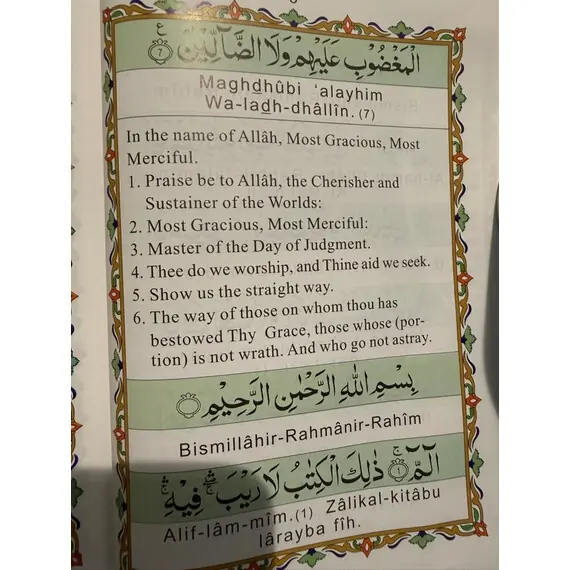 الْمَغْضُوْبِ عَلَيْهِمْ وَلَا الضَّآلِّيْنَ ۝ ٧ ع
Maghdhûbi ‘alayhim
Wa-ladh-dhâllîn. (7)
In the name of Allâh, Most Gracious, Most
Merciful.
1. Praise be to Allâh, the Cherisher and
Sustainer of the Worlds:
2. Most Gracious, Most Merciful:
3. Master of the Day of Judgment.
4. Thee do we worship, and Thine aid we seek.
5. Show us the straight way.
6. The way of those on whom thou has
bestowed Thy Grace, those whose (por-
tion) is not wrath. And who go not astray.
بِسْمِ اللهِ الرَّحْمٰنِ الرَّحِيْمِ ۝
Bismillâhir-Rahmânir-Rahîm
الٓمّٓ ۚ ۝ ١ ذٰلِكَ الْكِتٰبُ لَا رَيْبَ ۛ فِيْهِ ۛ
Alif-lâm-mîm.(1) Zâlikal-kitâbu
lârayba fîh.